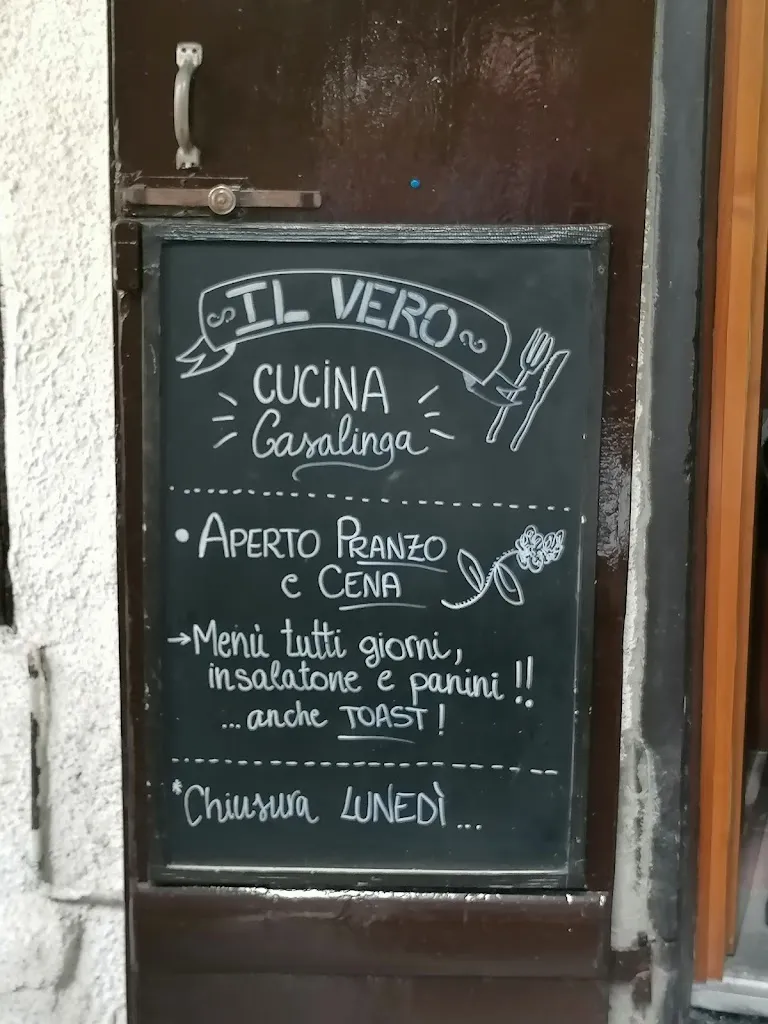 IL VERO
CUCINA
Casalinga
• APERTO PRANZO
e CENA
→ Menù tutti giorni,
insalatone e panini !!
...anche TOAST !
*Chiusura LUNEDÌ ...